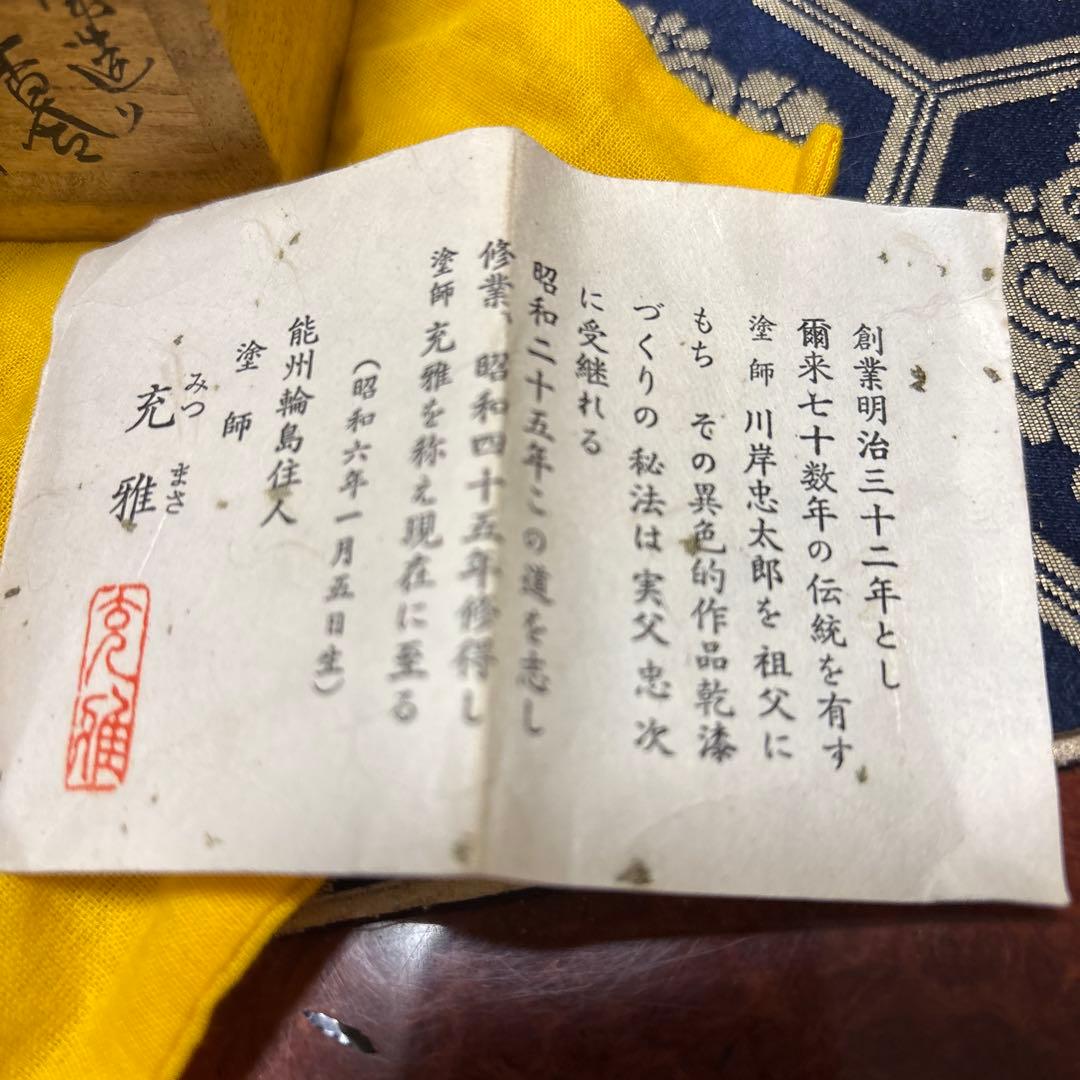 創業明治三十二年とし
爾来七十数年の伝統を有す
塗師 川岸忠太郎を 祖父に
もち その異色的作品乾漆
づくりの 秘法は 実父 忠次
に受継れる
昭和二十五年この道を志し
修業、昭和四十五年修得し
塗師 充雅を称え現在に至る
(昭和六年一月五日生)
能州輪島住人
塗師
みつ まさ
充雅
充雅
造り
香合